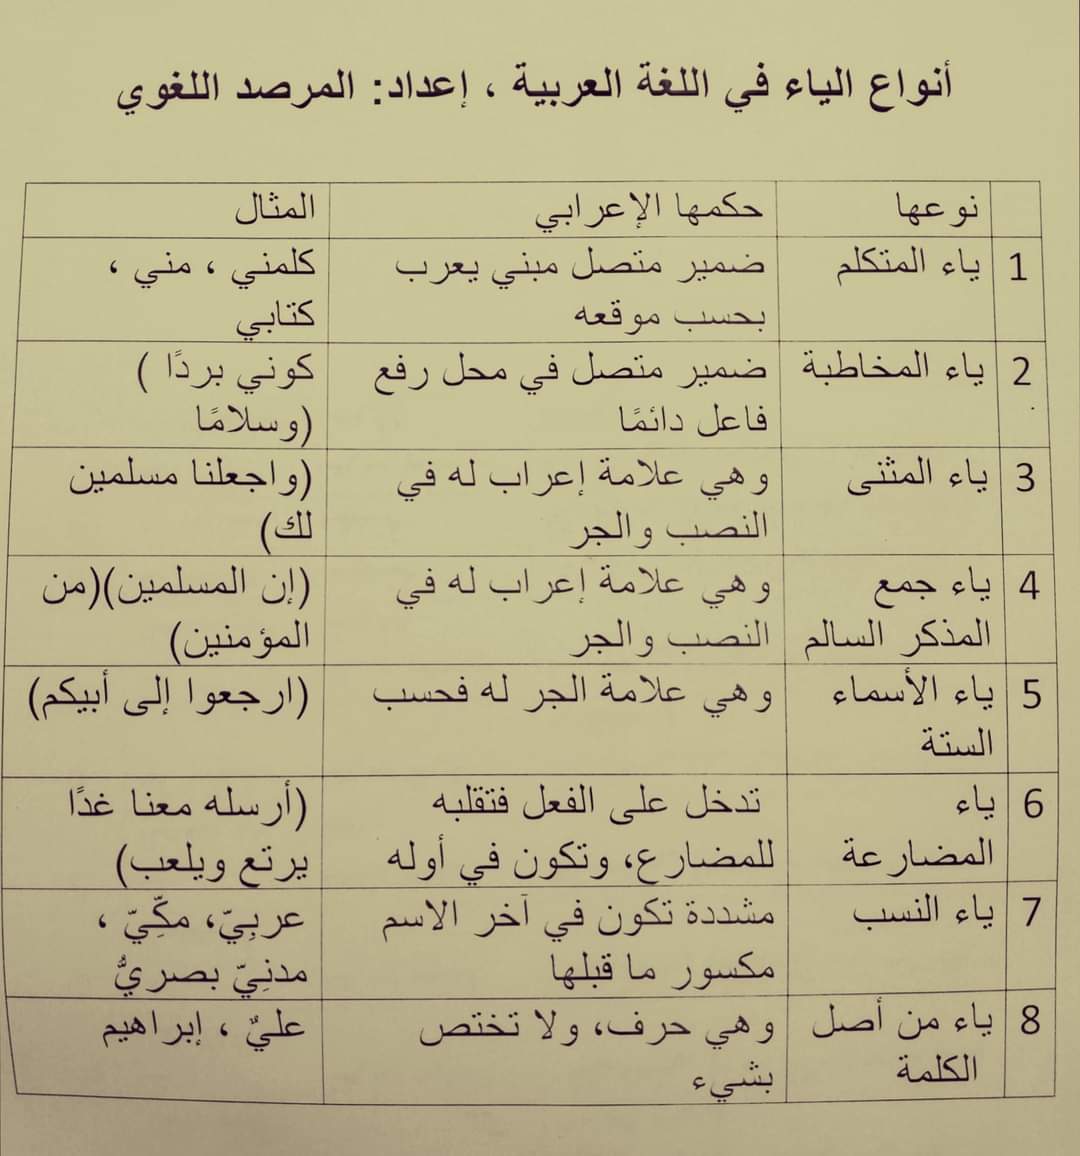 أنواع الياء في اللغة العربية ، إعداد: المرصد اللغوي
نوعها حكمها الإعرابي المثال
1 ياء المتكلم ضمير متصل مبني يعرب كلمني ، مني ،
بحسب موقعه كتابي
2 ياء المخاطبة ضمير متصل في محل رفع كوني بردًا )
فاعل دائمًا (وسلامًا
3 ياء المثنى وهي علامة إعراب له في (واجعلنا مسلمين
النصب والجر لك)
4 ياء جمع وهي علامة إعراب له في (إن المسلمين)(من
المذكر السالم النصب والجر المؤمنين)
5 ياء الأسماء وهي علامة الجر له فحسب (ارجعوا إلى أبيكم)
الستة
6 ياء تدخل على الفعل فتقلبه (أرسله معنا غدًا
المضارعة للمضارع، وتكون في أوله يرتع ويلعب)
7 ياء النسب مشددة تكون في آخر الاسم عربِيّ، مكِّيّ ،
مكسور ما قبلها مدنِيّ بصريُّ
8 ياء من أصل وهي حرف، ولا تختص عليٌ ، إبراهيم
الكلمة بشيء